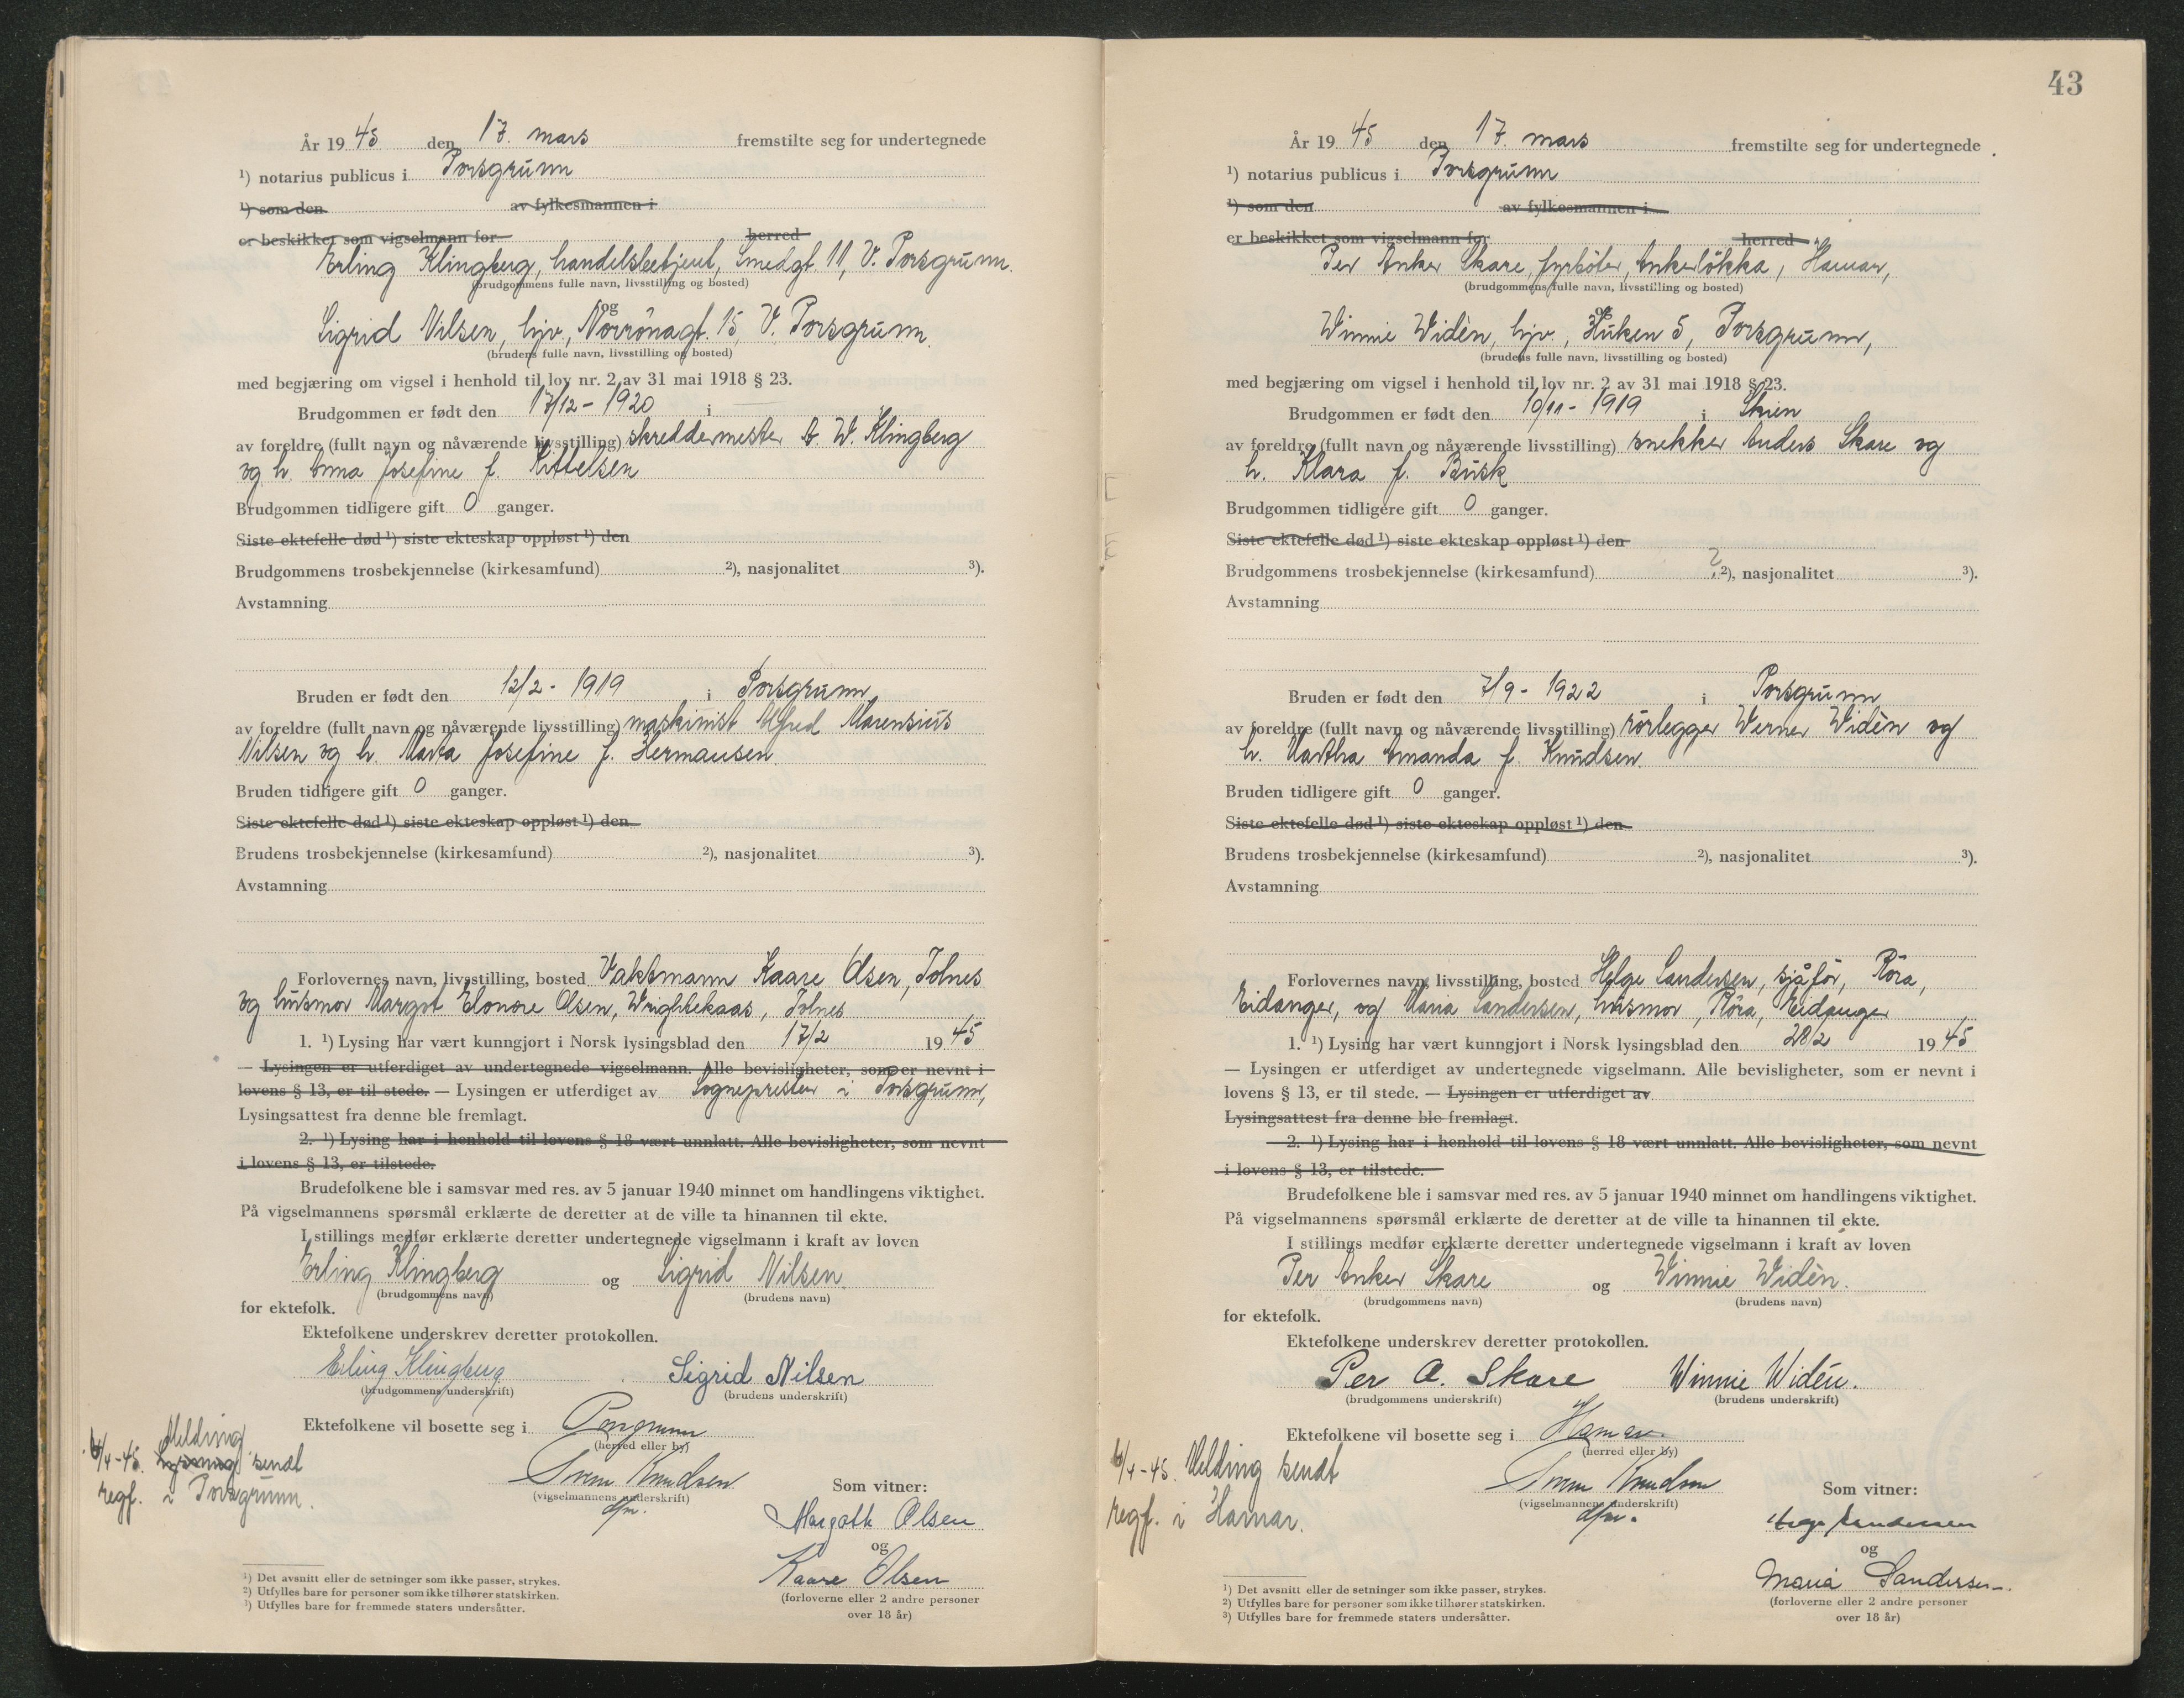 År 19 45 den 17. mars fremstilte seg for undertegnede
¹) notarius publicus i Porsgrunn
¹) som den av fylkesmannen i
er beskikket som vigselmann for herred
Erling Klingberg, handelsbetjent, Smedgt. 11, V. Porsgrunn.
(brudgommens fulle navn, livsstilling og bosted)
og
Sigrid Nilsen, hjv., Norrönagt. 15, V. Porsgrunn.
(brudens fulle navn, livsstilling og bosted)
med begjæring om vigsel i henhold til lov nr. 2 av 31 mai 1918 § 23.
Brudgommen er født den 17/12 - 1920 i
av foreldre (fullt navn og nåværende livsstilling) skreddermester A. W. Klingberg
og h. Anna Josefine f. Kittelsen
Brudgommen tidligere gift 0 ganger.
Siste ektefelle død ¹) siste ekteskap oppløst ¹) den
Brudgommens trosbekjennelse (kirkesamfund) ²), nasjonalitet ³).
Avstamning
Bruden er født den 12/2 - 1919 i Porsgrunn
av foreldre (fullt navn og nåværende livsstilling) maskinist Alfred Marensius
Nilsen og h. Marta Josefine f. Hermansen
Bruden tidligere gift 0 ganger.
Siste ektefelle død ¹) siste ekteskap oppløst ¹) den
Brudens trosbekjennelse (kirkesamfund) ²), nasjonalitet ³).
Avstamning
Forlovernes navn, livsstilling, bosted Vaktmann Kaare Olsen, Tolnes
og husmor Margot Elonore Olsen, Wrightekaas, Tolnes
1. ¹) Lysing har vært kunngjort i Norsk lysingsblad den 17/2 19 45
— Lysingen er utferdiget av undertegnede vigselmann. Alle bevisligheter, som er nevnt i
lovens § 13, er til stede. — Lysingen er utferdiget av Sognepresten i Porsgrunn,
Lysingsattest fra denne ble fremlagt.
2. ¹) Lysing har i henhold til lovens § 18 vært unnlatt. Alle bevisligheter, som nevnt
i lovens § 13, er tilstede.
Brudefolkene ble i samsvar med res. av 5 januar 1940 minnet om handlingens viktighet.
På vigselmannens spørsmål erklærte de deretter at de ville ta hinannen til ekte.
I stillings medfør erklærte deretter undertegnede vigselmann i kraft av loven
Erling Klingberg og Sigrid Nilsen
(brudgommens navn) (brudens navn)
for ektefolk.
Ektefolkene underskrev deretter protokollen.
Erling Klingberg Sigrid Nilsen
(brudgommens underskrift) (brudens underskrift)
Ektefolkene vil bosette seg i Porsgrunn
(herred eller by)
6/4-45. Lysning Melding sendt
regf. i Porsgrunn.
Svenn Knudsen
(vigselmannens underskrift)
dfm.
Som vitner:
Margoth Olsen
og
Kaare Olsen
(forloverne eller 2 andre personer
over 18 år)
¹) Det avsnitt eller de setninger som ikke passer, strykes.
²) Utfylles bare for personer som ikke tilhører statskirken.
³) Utfylles bare for fremmede staters undersåtter.
43
År 19 45 den 17. mars fremstilte seg for undertegnede
¹) notarius publicus i Porsgrunn
¹) som den av fylkesmannen i
er beskikket som vigselmann for herred
Per Anker Skare, fyrböter, Ankerlökka, Hamar,
(brudgommens fulle navn, livsstilling og bosted)
og
Winnie Widèn, hjv., Huken 5, Porsgrunn,
(brudens fulle navn, livsstilling og bosted)
med begjæring om vigsel i henhold til lov nr. 2 av 31 mai 1918 § 23.
Brudgommen er født den 10/11 - 1919 i Skien
av foreldre (fullt navn og nåværende livsstilling) snekker Anders Skare og
h. Klara f. Busk
Brudgommen tidligere gift 0 ganger.
Siste ektefelle død ¹) siste ekteskap oppløst ¹) den
Brudgommens trosbekjennelse (kirkesamfund) ²), nasjonalitet ³).
Avstamning
Bruden er født den 7/9 - 1922 i Porsgrunn
av foreldre (fullt navn og nåværende livsstilling) rörlegger Werner Widèn og
h. Martha Amanda f. Knudsen.
Bruden tidligere gift 0 ganger.
Siste ektefelle død ¹) siste ekteskap oppløst ¹) den
Brudens trosbekjennelse (kirkesamfund) ²), nasjonalitet ³).
Avstamning
Forlovernes navn, livsstilling, bosted Helge Sandersen, sjåför, Röra,
Eidanger, og Maria Sandersen, husmor, Röra, Eidanger
1. ¹) Lysing har vært kunngjort i Norsk lysingsblad den 28/2 19 45
— Lysingen er utferdiget av undertegnede vigselmann. Alle bevisligheter, som er nevnt i
lovens § 13, er til stede. — Lysingen er utferdiget av
Lysingsattest fra denne ble fremlagt.
2. ¹) Lysing har i henhold til lovens § 18 vært unnlatt. Alle bevisligheter, som nevnt
i lovens § 13, er tilstede.
Brudefolkene ble i samsvar med res. av 5 januar 1940 minnet om handlingens viktighet.
På vigselmannens spørsmål erklærte de deretter at de ville ta hinannen til ekte.
I stillings medfør erklærte deretter undertegnede vigselmann i kraft av loven
Per Anker Skare og Winnie Widèn.
(brudgommens navn) (brudens navn)
for ektefolk.
Ektefolkene underskrev deretter protokollen.
Per A. Skare Winnie Widèn.
(brudgommens underskrift) (brudens underskrift)
Ektefolkene vil bosette seg i Hamar.
(herred eller by)
6/4-45. Melding sendt
regf. i Hamar.
Svenn Knudsen
(vigselmannens underskrift)
dfm.
Som vitner:
Helge Sandersen
og
Maria Sandersen.
(forloverne eller 2 andre personer
over 18 år)
¹) Det avsnitt eller de setninger som ikke passer, strykes.
²) Utfylles bare for personer som ikke tilhører statskirken.
³) Utfylles bare for fremmede staters undersåtter.